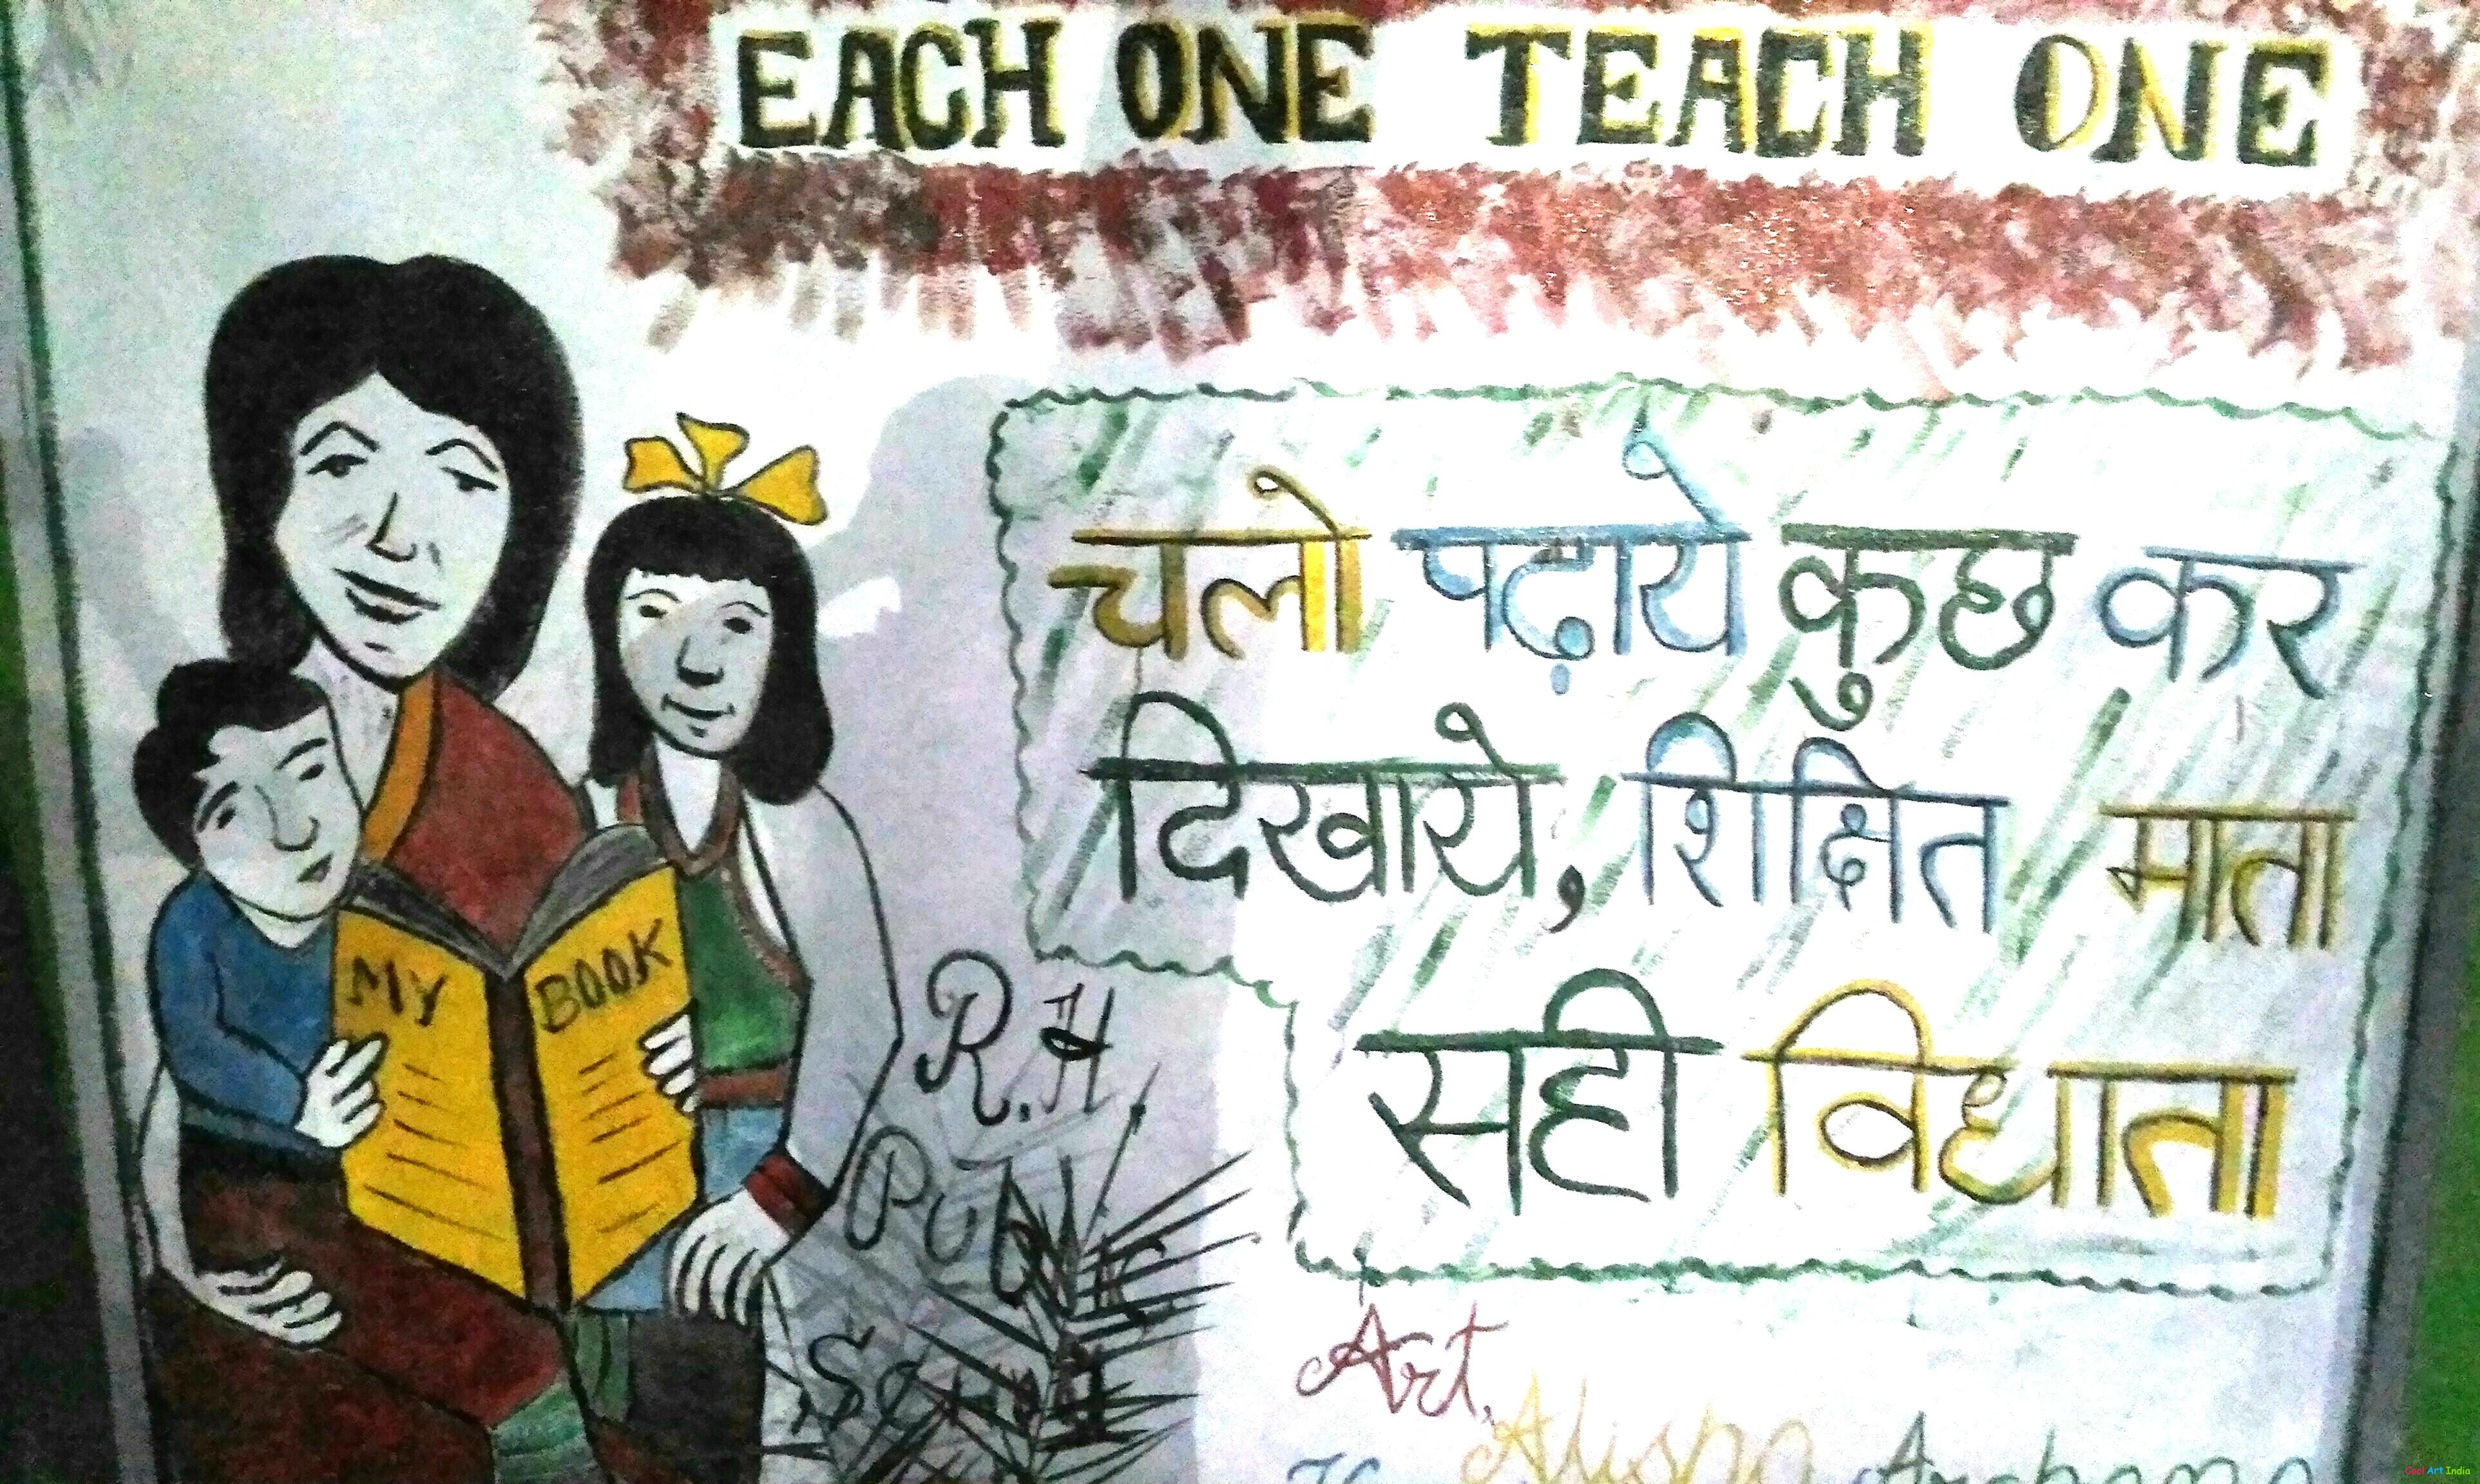 EACH ONE TEACH ONE
चलो पढ़ाये कुछ कर
दिखाये, शिक्षित माता
सही विधाता
MY BOOK
R.H
Public
School
Art,
Alisha Archana
Cool Art India